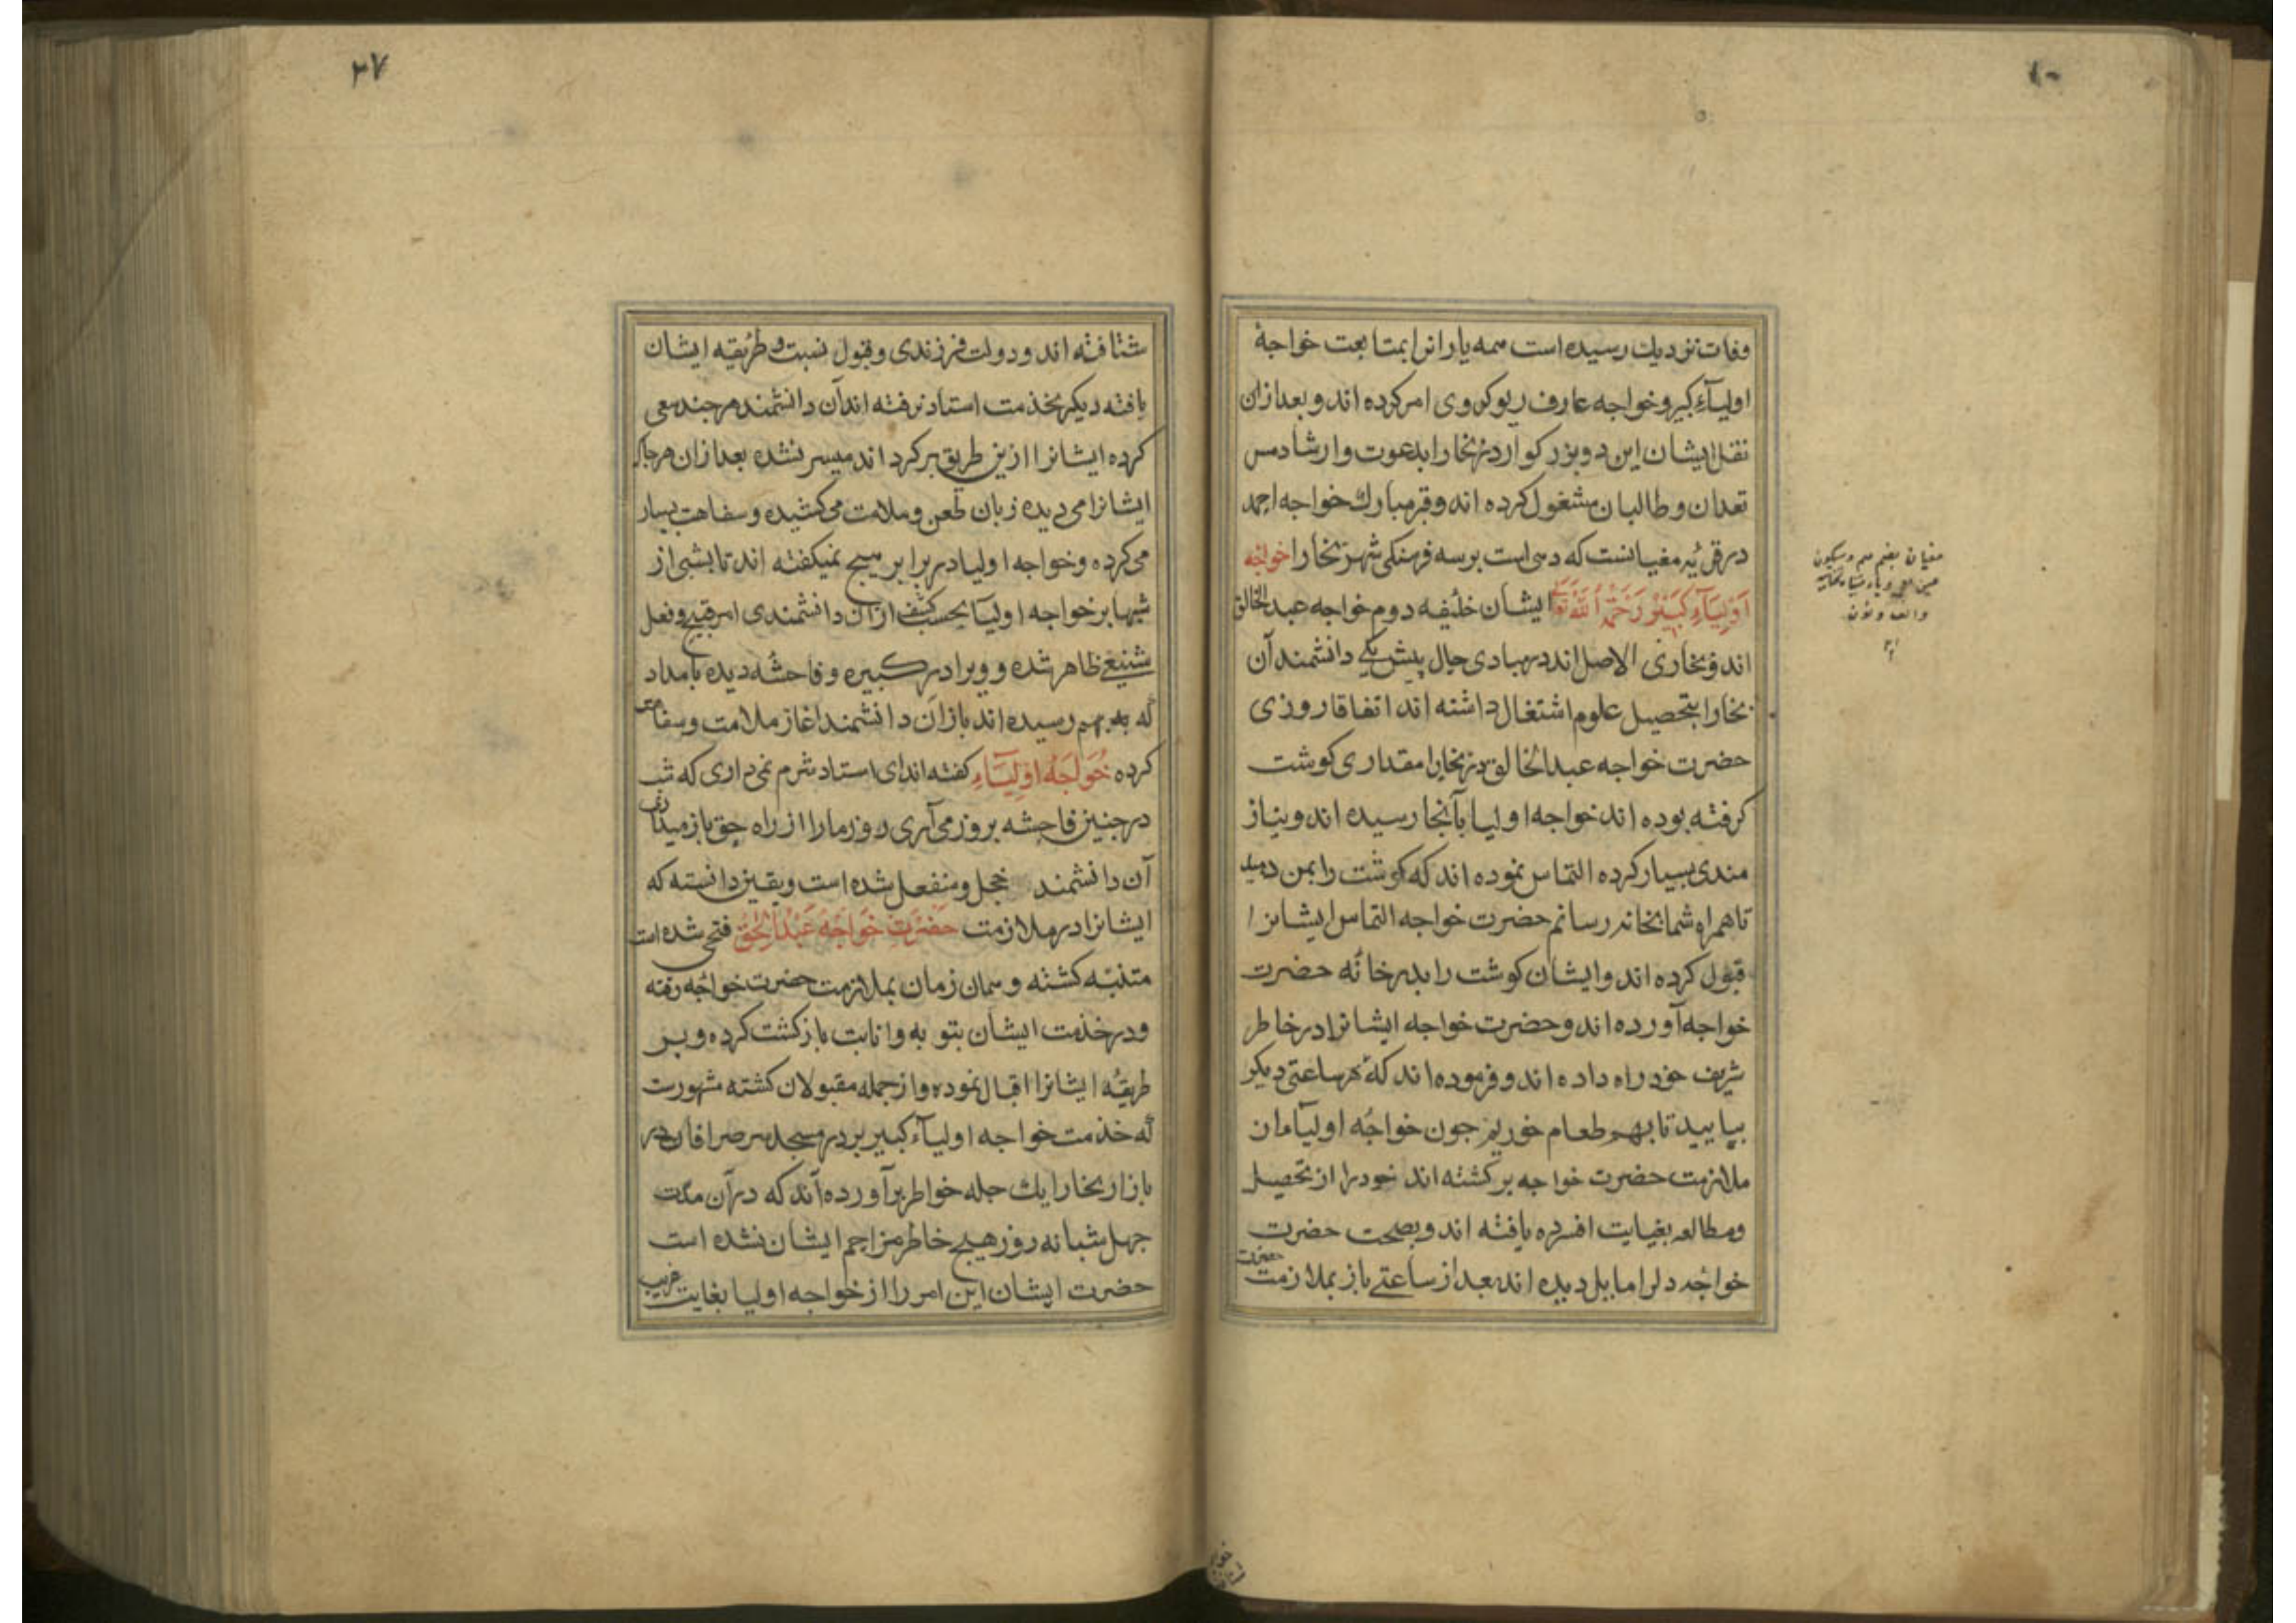 وفات نزدیك رسیده است همه یارانرا بمتابعت خواجهٔ
اولیآء کبیر و خواجه عارف ریوکروی امر کرده اند و بعد ازان
نقل ایشان این دو بزرکوار در بخارا بدعوت و ارشاد مس
تعدان و طالبان مشغول کرده اند و قبر مبارك خواجه احمد
در قریٔه مغیانست که دهی است بر سه فرسنکی شهر بخارا خواجه
اولیآء کبیر رحمه الله تعالی ایشان خلیفه دوم خواجه عبد الخالق
اند و بخاری الاصل اند در مبادی حال پیش یکی دانشمند آن
بخارا بتحصیل علوم اشتغال داشته اند اتفاقا روزی
حضرت خواجه عبد الخالق در بخارا مقداری کوشت
کرفته بوده اند خواجه اولیا بآنجا رسیده اند و بنیاز
مندی بسیار کرده التماس نموده اند که کوشت را بمن دهید
تا همراه شما بخانه رسانم حضرت خواجه التماس ایشانرا
قبول کرده اند و ایشان کوشت را بدر خانٔه حضرت
خواجه آورده اند و حضرت خواجه ایشانرا در خاطر
شریف خود راه داده اند و فرموده اند که بٔهر ساعتی دیکر
بیایید تا بهم طعام خوریم جون خواجٔه اولیآء ان
ملازمت حضرت خواجه برکشته اند خود را از تحصیل
ومطالعه بغیایت افسرده یافته اند و بصحبت حضرت
خواجٔه دلرا مایل دیده اند بعد از ساعتی باز بملازمت حضرت
مغیان بضم میم و سکون
غین معجمه ویاء مثناة تحتانیه
والف ونون
۱۰
۳۷
شتافته اند و دولت فرزندی و قبول نسبت و طریقه ایشان
یافته دیکر بخدمت استاد نرفته اند آن دانشمند هر جند سعی
کرده ایشانرا ازین طریق بر کرد اند میسر نشده بعد ازان هرجا که
ایشانرا می دیده زبان طعن و ملامت می کشیده و سفاهت بسیار
می کرده و خواجه اولیا در برابر هیچ نمیکفته اند تا بشبی از
شبها بر خواجه اولیآ بحسب کشف ازان دانشمندی امر قبیح و فعل
شنیعی ظاهر شده و ویرا در کبیره و فاحشٔه دیده بامداد
که بهم رسیده اند باز ان دانشمند اغاز ملامت و سفاهت
کرده خواجه اولیآء کفته اند ای استاد شرم نمی داری که شب
در جنین فاحشه بروز می آری و روز مارا از راه حق باز میداری
آن دانشمند خجل و منفعل شده است و یقین دانسته که
ایشانرا در ملازمت حضرت خواجه عبد الخالق فتحی شده است
متنبّه کشته و همان زمان بملازمت حضرت خواجه رفته
و در خدمت ایشان بتوبه و انابت بازکشت کرده و بر
طریقٔه ایشانرا اقبال نموده و از جمله مقبولان کشته مشهورست
که خدمت خواجه اولیآء کبیر بر در مسجد سر صرافان در
بازار بخارا یك جله خواطر برآورده اند که در آن مدت
جهل شبانه روز هیچ خاطر مزاحم ایشان نشده است
حضرت ایشان این امر را از خواجه اولیا بغایت غریب